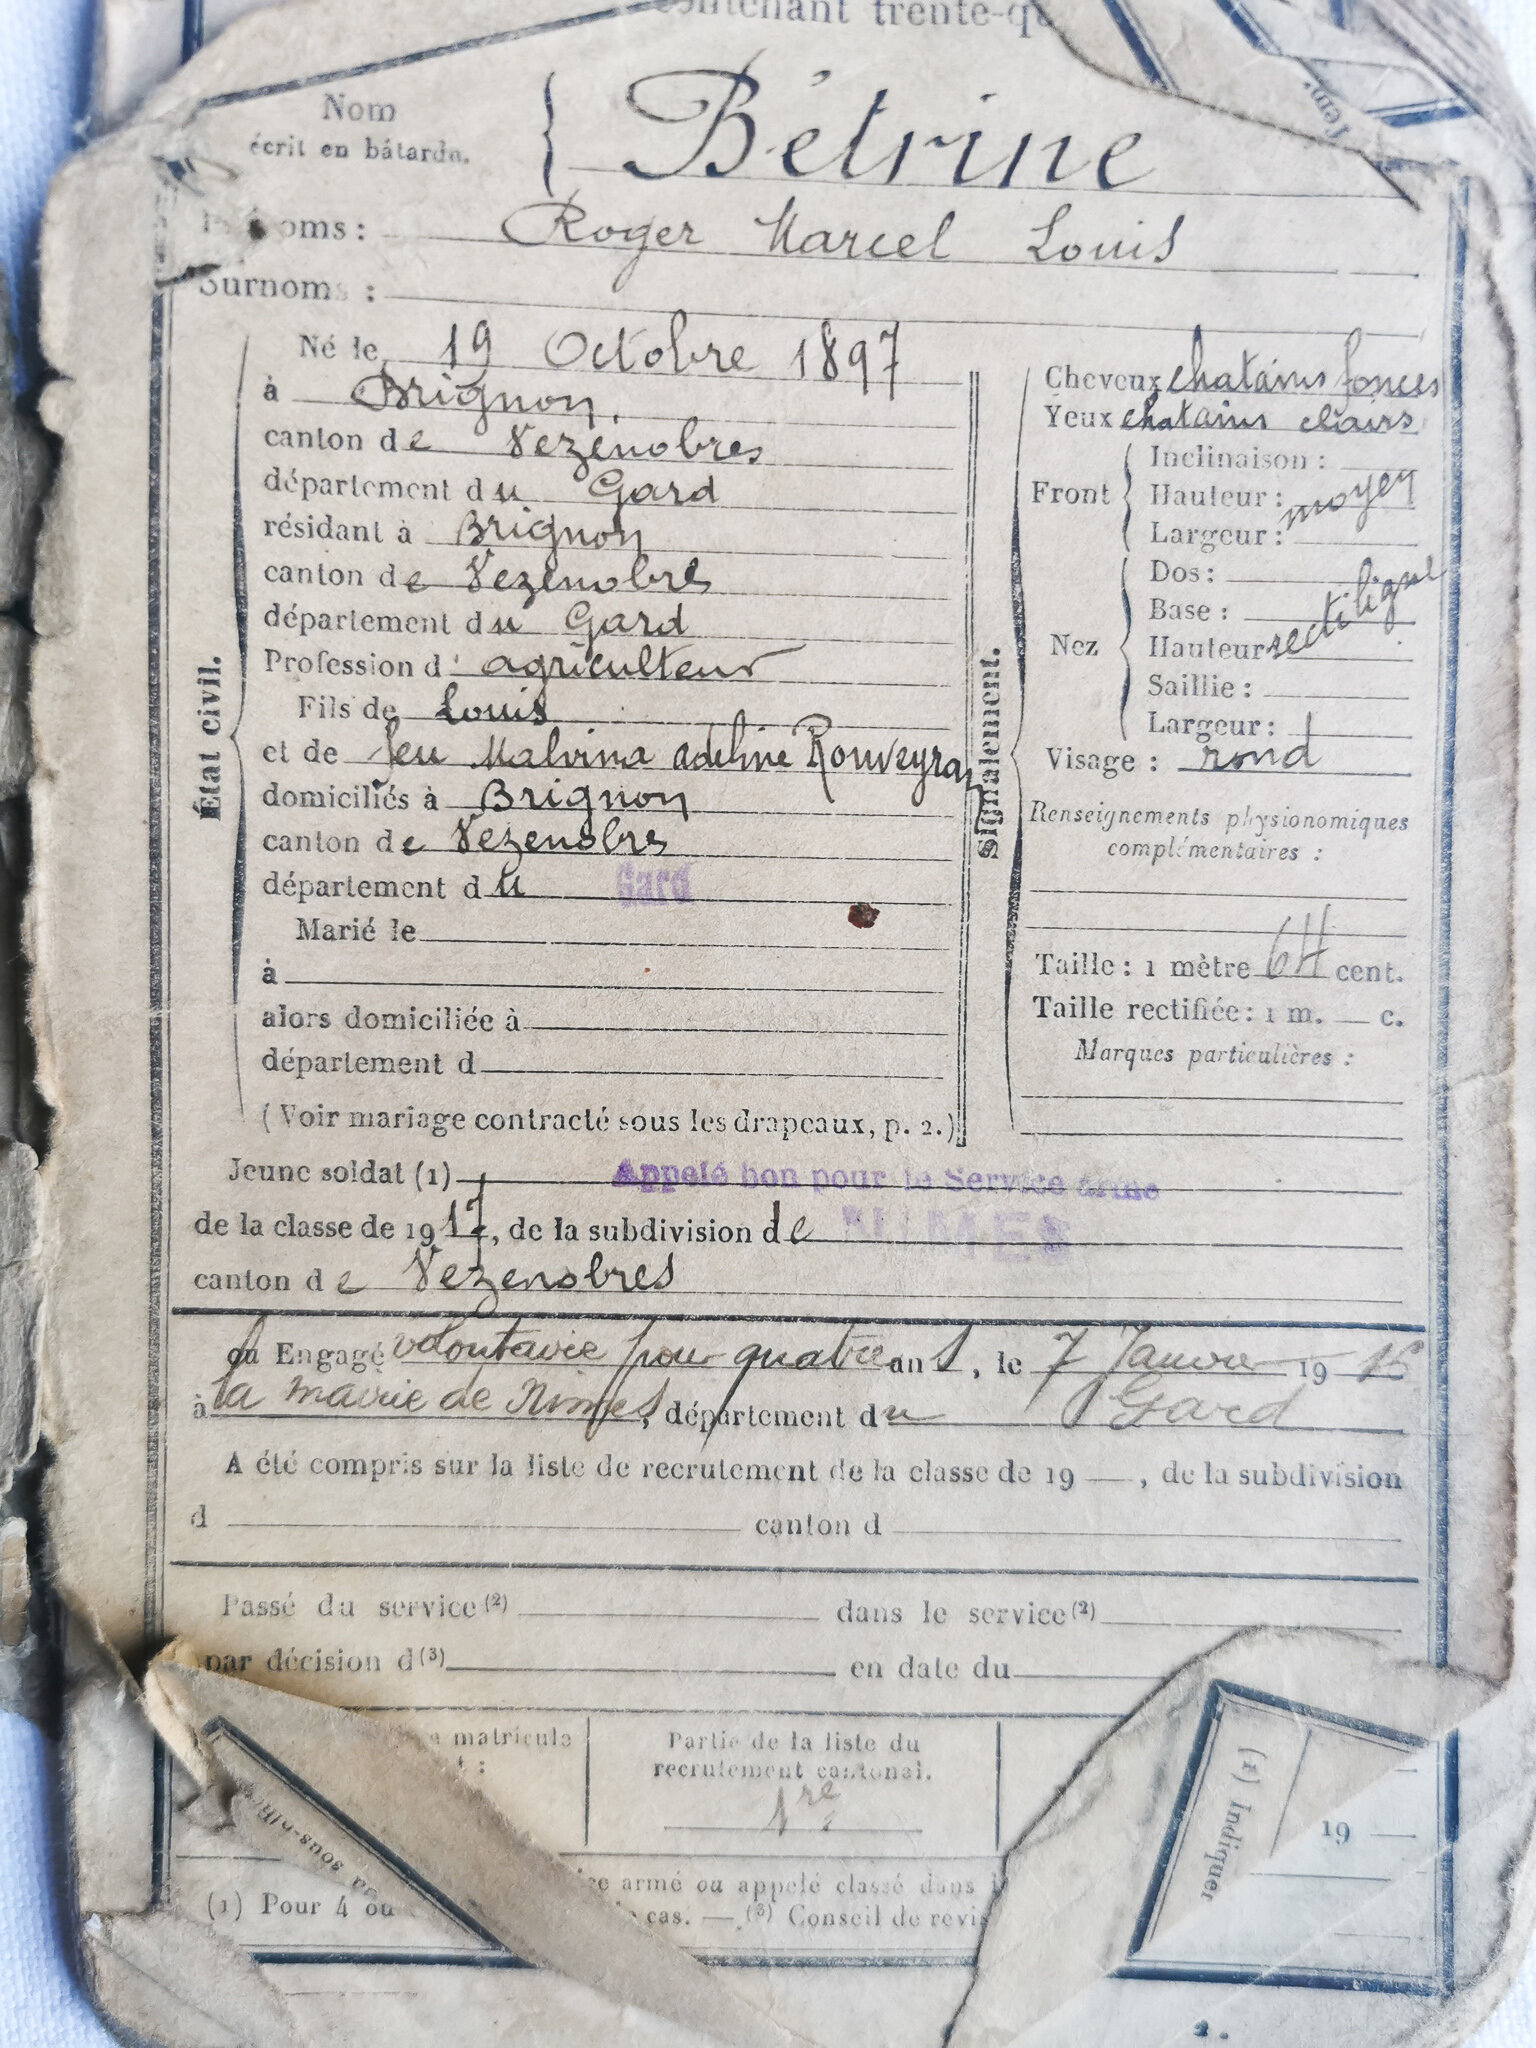 contenant trente-qu
Nom
écrit en bâtarde.
Bétrine
oms : Roger Marcel Louis
Surnoms :
État civil.
Né le 19 Octobre 1897
à Brignon.
canton de Vezénobres
département du Gard
résidant à Brignon
canton de Vezenobres
département du Gard
Profession d' agriculteur
Fils de Louis
et de feu Malvina Adeline Rouveyran
domiciliés à Brignon
canton de Vezenobres
département du Gard
Marié le
à
alors domiciliée à
département d
(Voir mariage contracté sous les drapeaux, p. 2.)
Signalement.
Cheveux chatains foncés
Yeux chatains clairs
Front
Inclinaison :
Hauteur : moyen
Largeur :
Nez
Dos :
Base :
Hauteur rectiligne
Saillie :
Largeur :
Visage : rond
Renseignements physionomiques
complémentaires :
Taille : 1 mètre 64 cent.
Taille rectifiée : 1 m. — c.
Marques particulières :
Jeune soldat (1) Appelé bon pour le Service armé
de la classe de 1917, de la subdivision de NIMES
canton de Vezenobres
ou Engagé volontaire pour quatre ans, le 7 Janvier 19
à la mairie de Nimes, département du Gard
A été compris sur la liste de recrutement de la classe de 19 —, de la subdivision
d canton d
Passé du service (2) dans le service (2)
par décision d (3) en date du
matricule
:
Partie de la liste du
recrutement cantonal.
1re
(1) Indiquer
19
(1) Pour 4 ou
armé ou appelé classé dans
cas. — (3) Conseil de revis